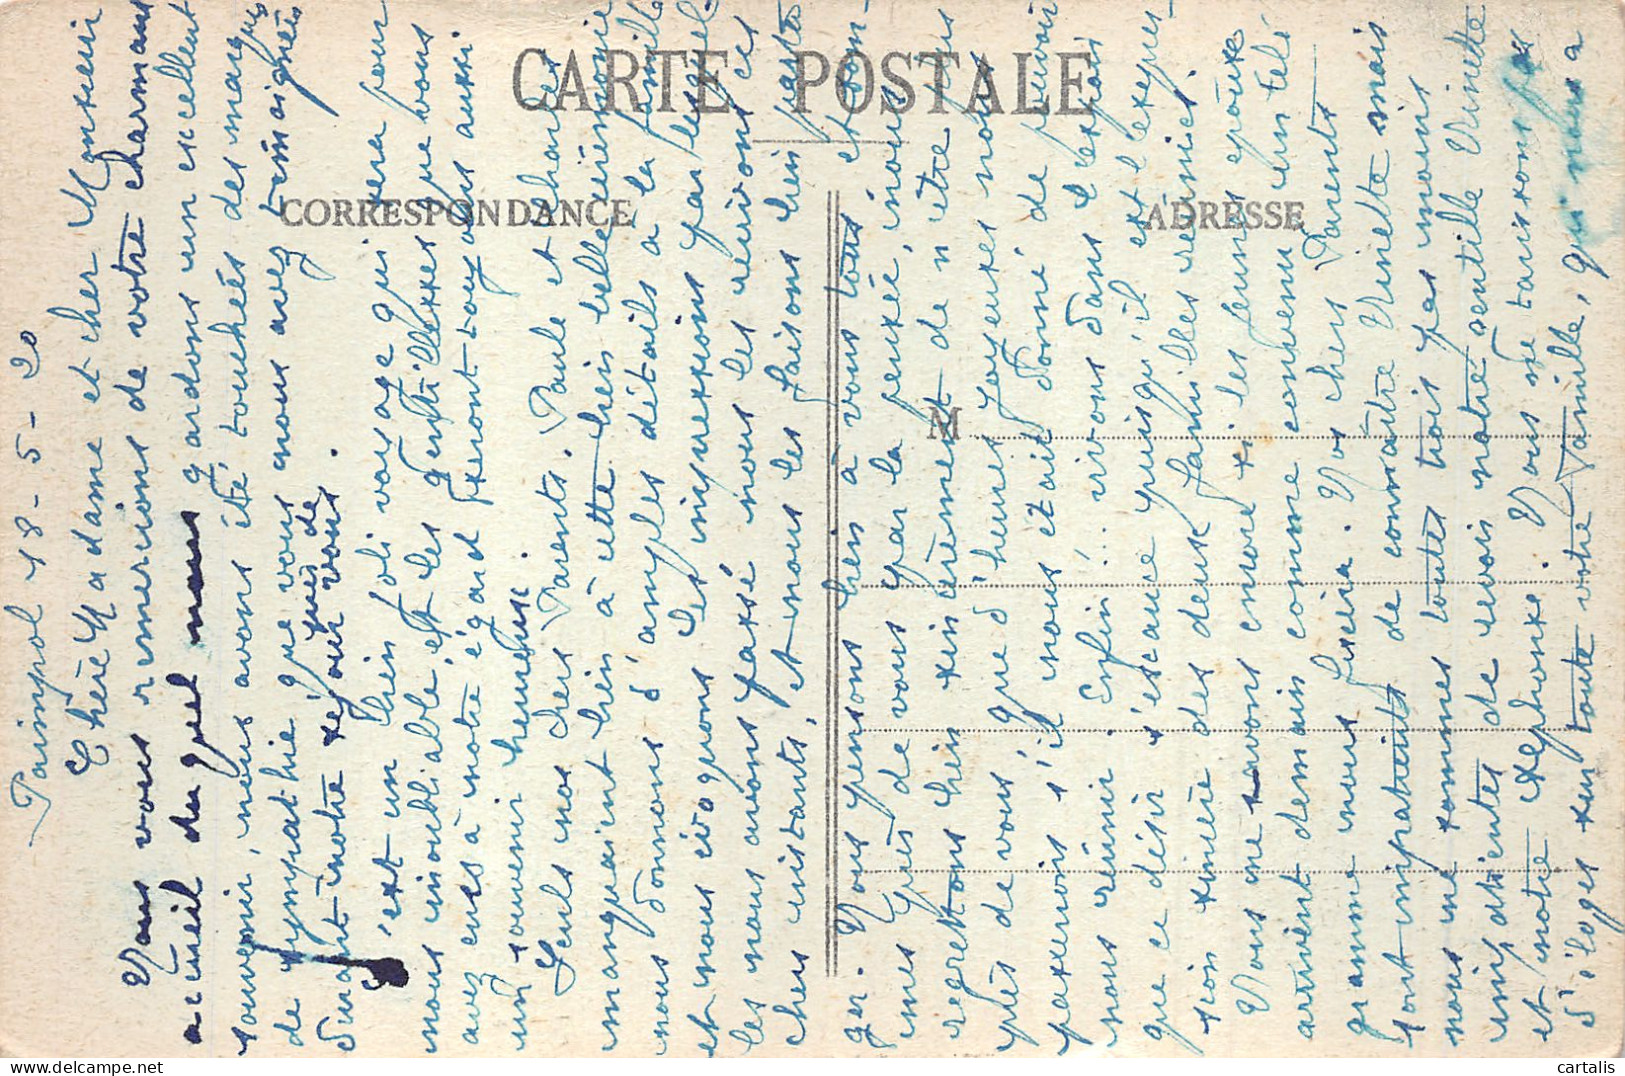 CARTE POSTALE
CORRESPONDANCE
ADRESSE
M
Paimpol 18-5-20
Chère Madame et cher Monsieur
Nous vous remercions de votre charmant
accueil du quel nous gardons un excellent
souvenir, nous avons été touchés des marques
de sympathie que vous nous avez témoignées
durant notre séjour près de vous.
C'est un bien joli voyage qui sera pour
nous inoubliable et les gentillesses que vous
avez eues à notre égard seront toujours aussi
un souvenir heureux.
Seuls nos chers Parents, Paule et
manquaient bien à cette bien belle
nous donnons d'amples détails à la famille
et nous évoquons les impressions par lesquel-
les nous avons passé nous les revivons ces
chers instants, et nous les faisons bien parta-
ger. Nous pensons bien à vous tous et som-
mes près de vous par la pensée, nous
regrettons bien sincèrement de n'être plus
près de vous, que d'heures joyeuses nous
passerions s'il nous était donné de pouvoir
nous réunir. Enfin!.. vivons dans l'espoir
que ce désir s'exauce puisqu'il est l'expres-
sion sincère des deux familles réunies.
Nous ne savons encore si les jeunes époux
arrivent demain comme convenu un télé-
gramme nous fixera. Nos chers Parents
sont impatients de connaître Ninette mais
nous ne sommes toutes trois pas moins
impatientes de revoir notre gentille Ninette
et notre Alphonse. Nous ne tarissons pas
d'éloges sur toute votre Famille, qui nous a
cartalis